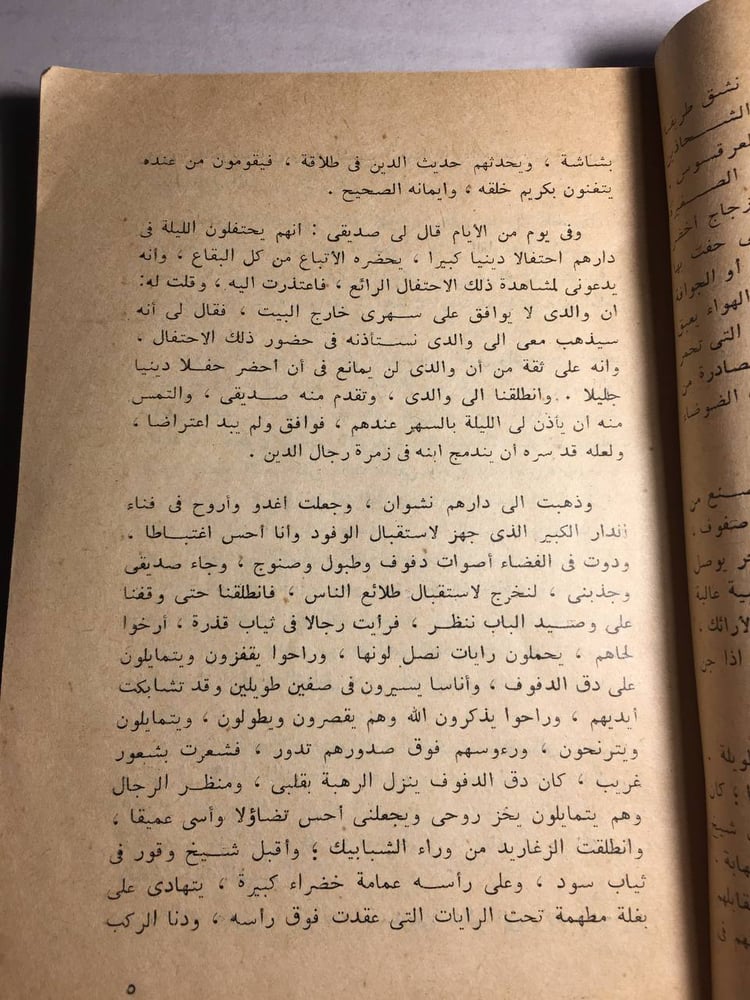 بشاشة ، ويحدثهم حديث الدين فى طلاقة ، فيقومون من عنده
يتغنون بكريم خلقه ، وايمانه الصحيح .
وفى يوم من الأيام قال لى صديقى : انهم يحتفلون الليلة فى
دارهم احتفالا دينيا كبيرا ، يحضره الأتباع من كل البقاع ، وأنه
يدعونى لمشاهدة ذلك الاحتفال الرائع ، فاعتذرت اليه ، وقلت له:
ان والدى لا يوافق على سهرى خارج البيت ، فقال لى أنه
سيذهب معى الى والدى نستأذنه فى حضور ذلك الاحتفال ،
وانه على ثقة من أن والدى لن يمانع فى أن أحضر حفلا دينيا
جليلا .. وانطلقنا الى والدى ، وتقدم منه صديقى ، والتمس
منه ان يأذن لى الليلة بالسهر عندهم ، فوافق ولم يبد اعتراضا ،
ولعله قد سره أن يندمج ابنه فى زمرة رجال الدين .
وذهبت الى دارهم نشوان ، وجعلت أغدو وأروح فى فناء
الدار الكبير الذى جهز لاستقبال الوفود وأنا أحس اغتباطا ،
ودوت فى الفضاء أصوات دفوف وطبول وصنوج ، وجاء صديقى
وجذبنى ، لنخرج لاستقبال طلائع الناس ، فانطلقنا حتى وقفنا
على وصيد الباب ننظر ، فرأيت رجالا فى ثياب قذرة ، أرخوا
لحاهم ، يحملون رايات نصل لونها ، وراحوا يقفزون ويتمايلون
على دق الدفوف ، وأناسا يسيرون فى صفين طويلين وقد تشابكت
أيديهم ، وراحوا يذكرون الله وهم يقصرون ويطولون ، ويتمايلون
ويترنحون ، ورءوسهم فوق صدورهم تدور ، فشعرت بشعور
غريب ، كان دق الدفوف ينزل الرهبة بقلبى ، ومنظر الرجال
وهم يتمايلون يخز روحى ويجعلنى أحس تضاؤلا وأسى عميقا ،
وانطلقت الزغاريد من وراء الشبابيك ؛ وأقبل شيخ وقور فى
ثياب سود ، وعلى رأسه عمامة خضراء كبيرة ، يتهادى على
بغلة مطهمة تحت الرايات التى عقدت فوق رأسه ، ودنا الركب
٥